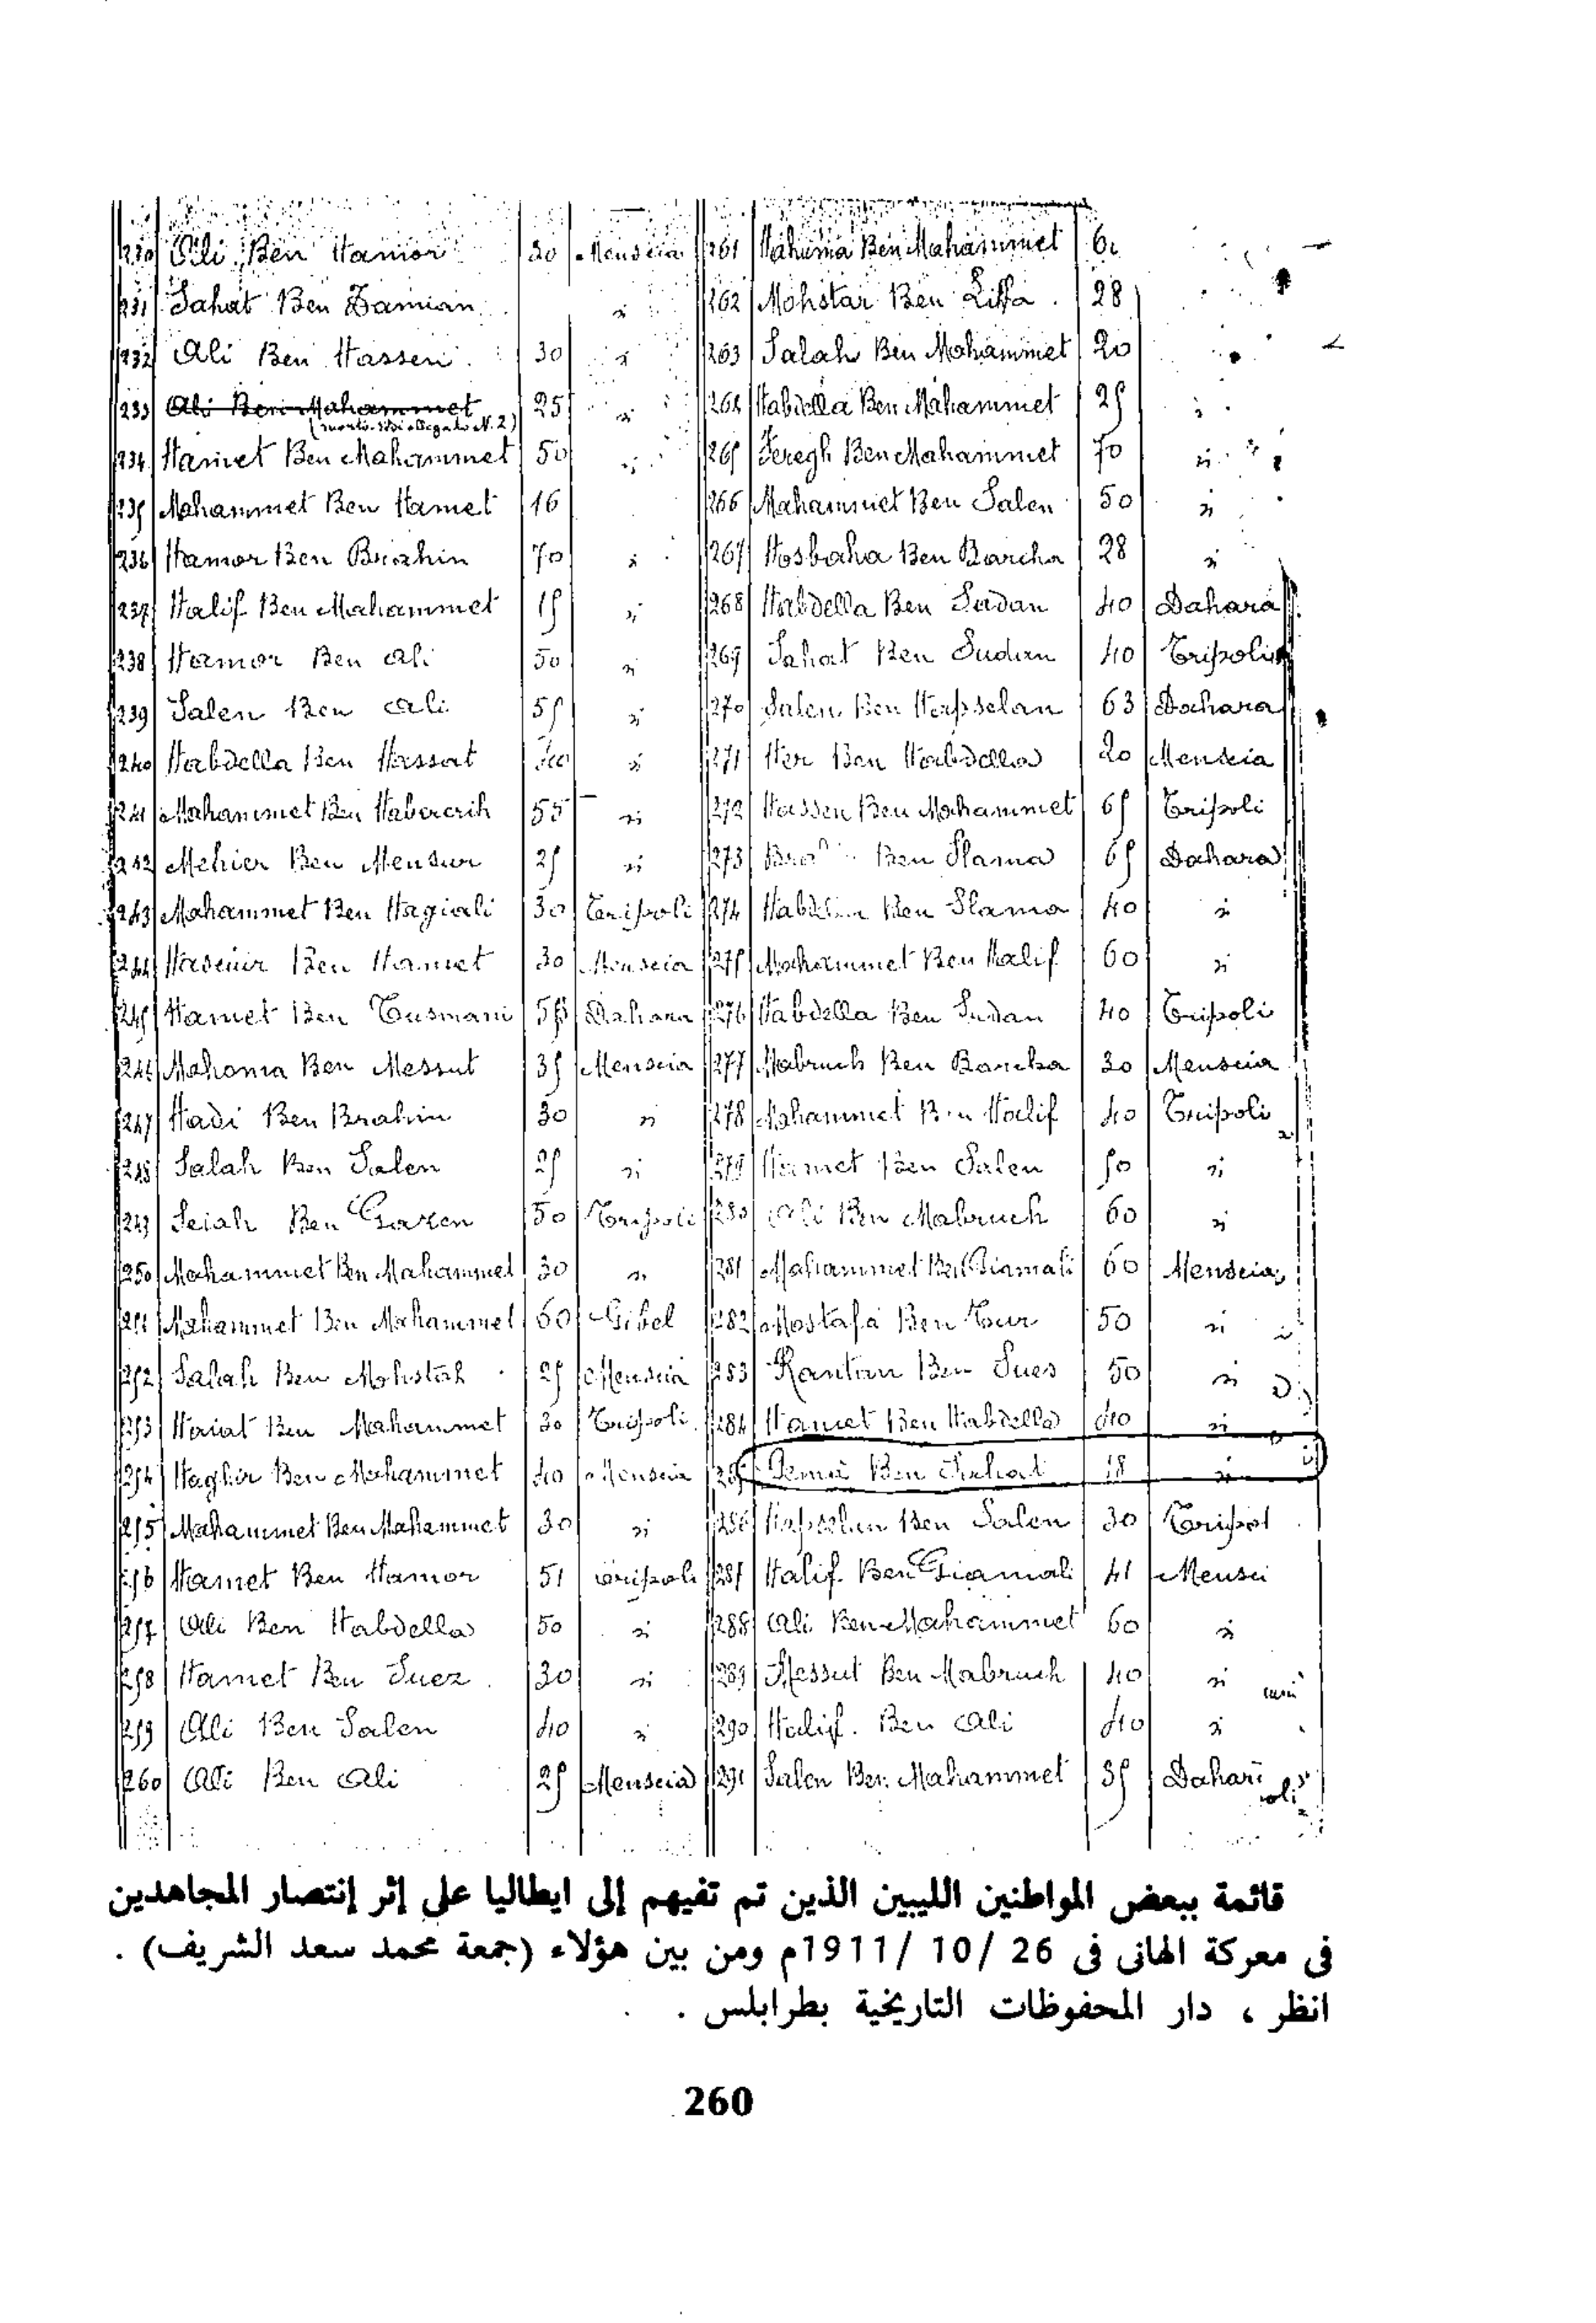 Ben Hamor 30 Menscia
231 Sahat Ben Damian "
232 Ali Ben Hassen 30 "
233 Ali Ben Mahammet 25 "
234 Hamet Ben Mahammet 50 "
235 Mahammet Ben Hamet 16
236 Hamor Ben Brahin 70 "
237 Halif Ben Mahammet 15 "
238 Hamor Ben Ali 50 "
239 Salen Ben Ali 55 "
240 Habdella Ben Hassat "
241 Mahammet Ben 55 "
242 Mehier Ben Mensur 25 "
243 Mahammet Ben Hagiali 30 Tripoli
244 Ben Hamet 30 Menscia
245 Hamet Ben Tusmani Dahara
246 Mahoma Ben Messut 35 Menscia
247 Hadi Ben Brahin 30 "
248 Salah Ben Salen 25 "
249 Seiah Ben Garen 50 Tripoli
250 Mahammet Ben Mahammet 30 "
251 Mahammet Ben Mahammet 60 Gibel
252 Salah Ben Mohstah 25 Menscia
253 Hariat Ben Mahammet 30 Tripoli
254 Haghir Ben Mahammet 40 Menscia
255 Mahammet Ben Mahammet 30 "
256 Hamet Ben Hamor 51 Tripoli
257 Ali Ben Habdella 50 "
258 Hamet Ben Suez 30 "
259 Ali Ben Salen 40 "
260 Ali Ben Ali 25 Menscia
261 Mahuma Ben Mahammet
262 Mohstar Ben Liffa 28
263 Salah Ben Mohammet 20
264 Habdella Ben Mahammet 25 "
265 Feregh Ben Mahammet 70 "
266 Mahammet Ben Salen 50 "
267 Hosbaha Ben Barcha 28 "
268 Habdella Ben Sudan 40 Dahara
269 Sahat Ben Sudan 40 Tripoli
270 Salen Ben Hapselan 63 Dahara
271 Her Ben Habdella 20 Menscia
272 Hassen Ben Mohammet 65 Tripoli
273 Ben Slama 65 Dahara
274 Ben Slama 40 "
275 Mahammet Ben Halif 60 "
276 Habdella Ben Sudan 40 Tripoli
277 Mabruch Ben Barcha 30 Menscia
278 Mahammet Ben Halif 40 Tripoli
279 Hamet Ben Salen 50 "
280 Ali Ben Mabruch 60 "
281 Mahammet Ben Giamali 60 Menscia
282 Mostafa Ben Tur 50 "
283 Rantan Ben Sues 50 "
284 Hamet Ben Habdella 40 "
285 Gema Ben 18 "
286 Hapselan Ben Salen 30 Tripol
287 Halif Ben Giamali 41 Mensci
288 Ali Ben Mahammet 60 "
289 Messut Ben Mabruch 40 "
290 Halif. Ben Ali 40 "
291 Salen Ben Mahammet 35 Dahar
قائمة ببعض المواطنين الليبين الذين تم تفيهم إلى ايطاليا على إثر إنتصار المجاهدين
فى معركة الهانى فى 26 /10 /1911م ومن بين هؤلاء (جمعة محمد سعد الشريف) .
انظر ، دار المحفوظات التاريخية بطرابلس .
260